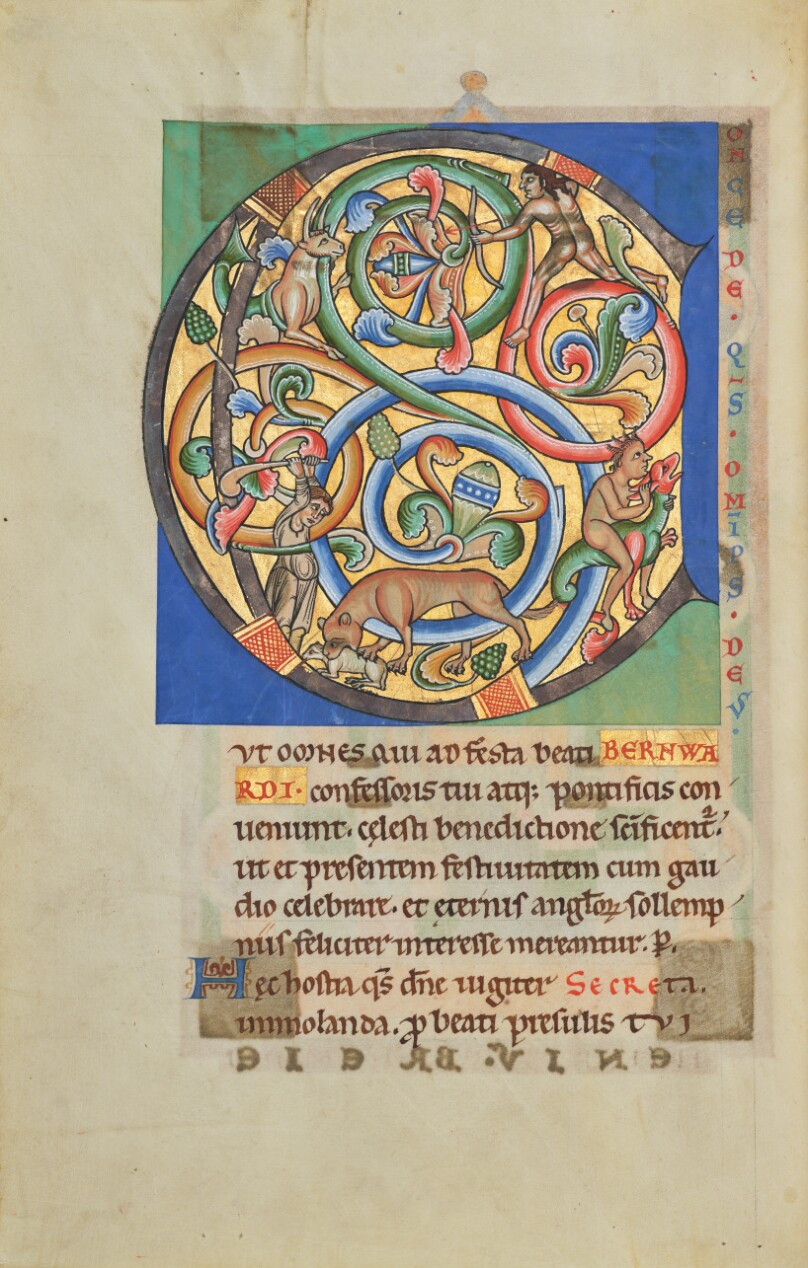 C
ONCEDE. Q̄S. OM̄IPS. DEUS.
UT OMNES QUI AD festa beati BERNWA
RDI. confessoris tui atq; pontificis con
ueniunt. cęlesti benedictione sc̄ificent᷑.
ut et presentem festiuitatem cum gau
dio celebrare. et eternis anglo℞ sollemp
niis feliciter interesse mereantur. P.
Hęc hostia qs̄ dn̄e iugiter Secreta.
immolanda. ꝓ beati presulis TUI